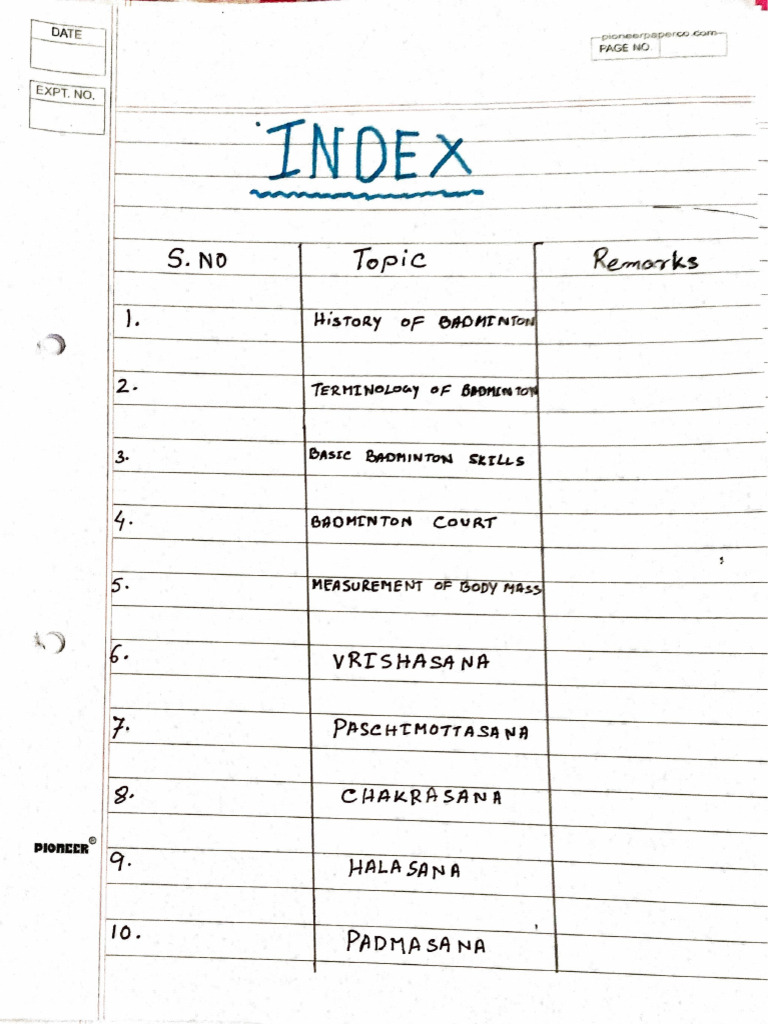 DATE
pioneerpaperco.com
PAGE NO.
EXPT. NO.
INDEX
S. NO Topic Remarks
1. HISTORY OF BADMINTON
2. TERMINOLOGY OF BADMINTON
3. BASIC BADMINTON SKILLS
4. BADMINTON COURT
5. MEASUREMENT OF BODY MASS
6. VRISHASANA
7. PASCHIMOTTASANA
8. CHAKRASANA
PIONEER®
9. HALASANA
10. PADMASANA